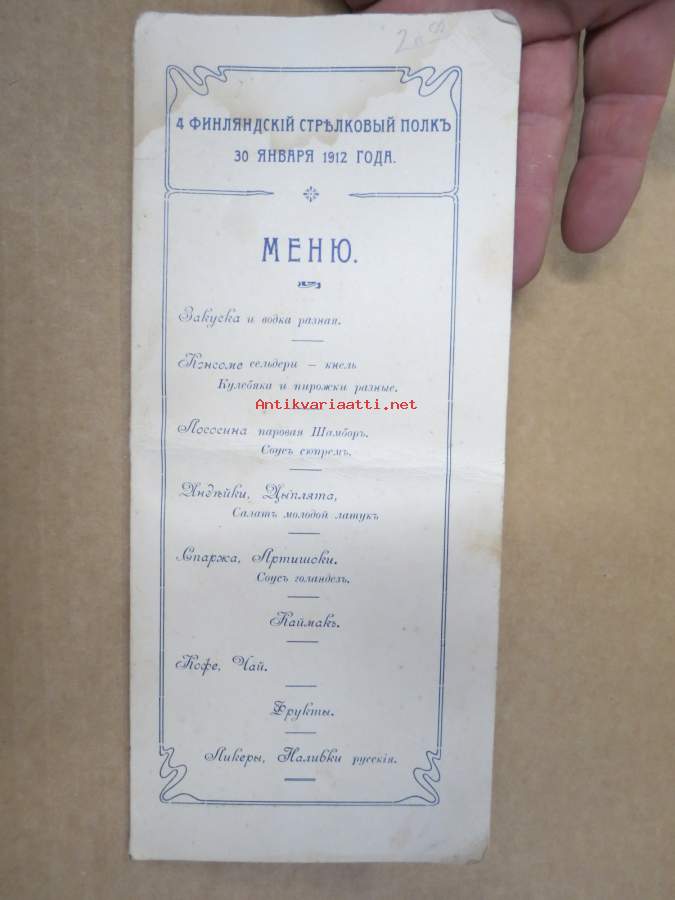 20
4 ФИНЛЯНДСКІЙ СТРѢЛКОВЫЙ ПОЛКЪ
30 ЯНВАРЯ 1912 ГОДА.
МЕНЮ.
Закуска и водка разная.
Консоме сельдери — кнель
Кулебяка и пирожки разные.
Antikvariaatti.net
Лососина паровая Шамборъ.
Соусъ сюпремъ.
Индѣйки, Цыплята,
Салатъ молодой латукъ
Спаржа, Артишоки.
Соусъ голандезъ.
Каймакъ.
Кофе, Чай.
Фрукты.
Ликеры, Наливки русскія.